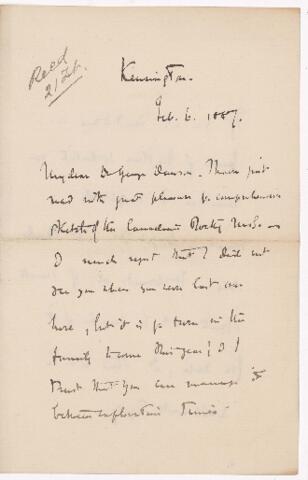 Recd
21 Feb.
Kensington.
Feb. 6. 1887.
My dear Dr George Dawson. I have just
read with great pleasure yr comprehensive
sketch of the Canadian Rocky Mts. –
I much regret that I did not
see you when you were last over
here, but it is yr turn in the
family to come this year! & I
trust that you can manage it
between exploration times.